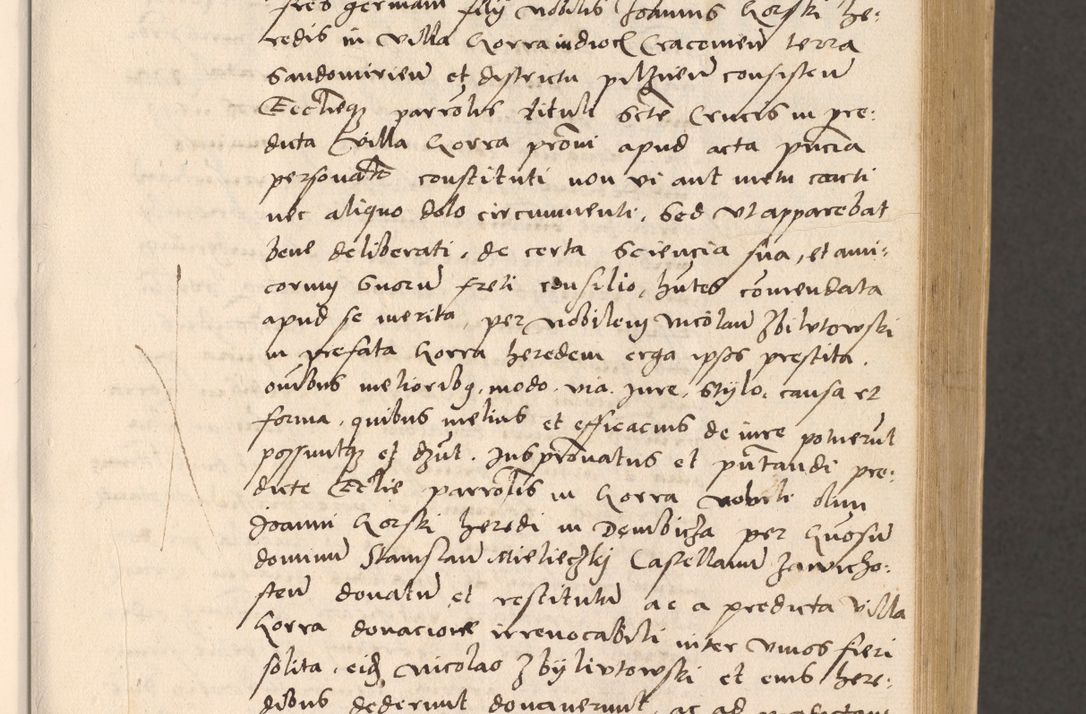 fres germani filij nobilis Joannis Gorski he:
redis in villa Gorra in dioc Cracovien terra
Sandomirien et districtu pilznen consisten
Ecclieq parrolis tituli Scte Crucis in pre:
dicta villa Gorra proni apud acta pncia
personalr constituti non vi aut metu coacti
nec aliquo dolo circumuenti, Sed vt apparebat
bene deliberati, de certa Sciencia sua, et ami:
corum Suorum freti consilio, hntes comendata
apud se merita, per nobilem Nicolaum Zbilutowski
in prefata Gorra heredem erga ipsos prestita,
omibus melioribq, modo, via, Jure, Stijlo, causa et
forma, quibus melius et efficacius de iure potuerut
possuntq et dznt, Jus pronatus et pntandi pre:
dicte Ecclie parrolis in Gorra nobili olim
Joanni Gorski heredi in Dembicza per Gnosum
dominum Stanislaum Mieliechij Castellanum Zawicho:
sten donatum et restitutum ac a predicta Villa
Gorra donacione irreuocabili inter viuos fieri
solita, eidem Nicolao Zbijlivtowski et eius here:
dibus dederunt donauerunt, ac ad